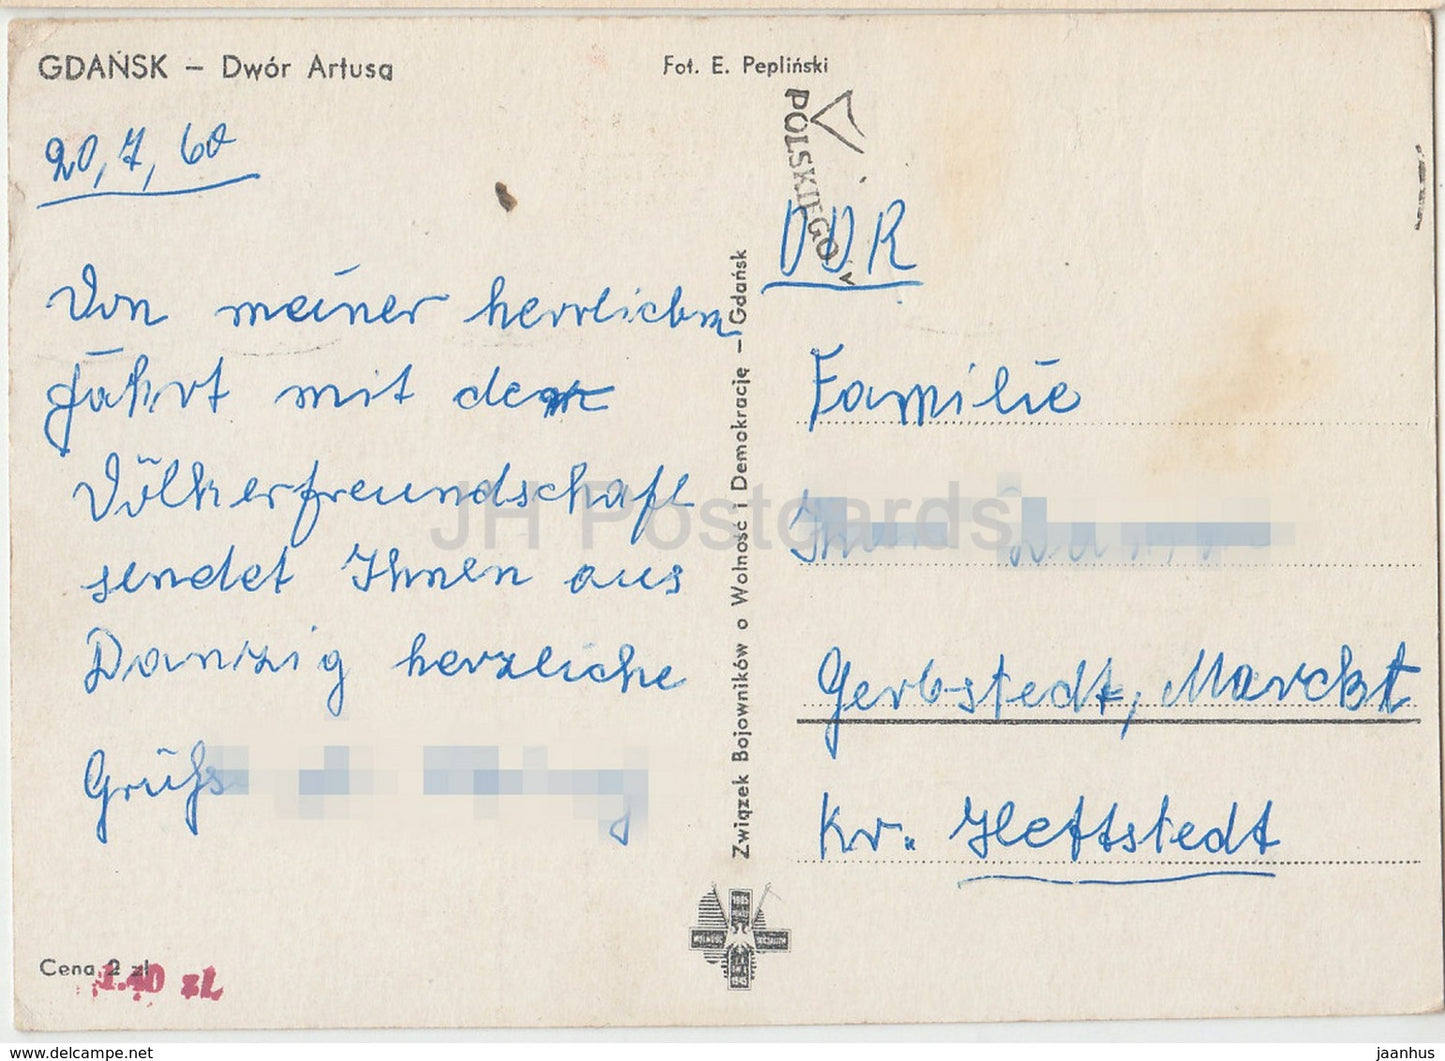 GDAŃSK – Dwór Artusa
Fot. E. Pepliński
20,7,60
Von meiner herrlichen
Fahrt mit der
Völkerfreundschaft
sendet Ihnen aus
Danzig herzliche
Grüße
Cena 2 zł
1.40 zł
Związek Bojowników o Wolność i Demokrację – Gdańsk
POLSKIEGO
DDR
Familie
Gerbstedt, Marckt
Kr. Hettstedt
JH Postcards
delcampe.net
jaanhus